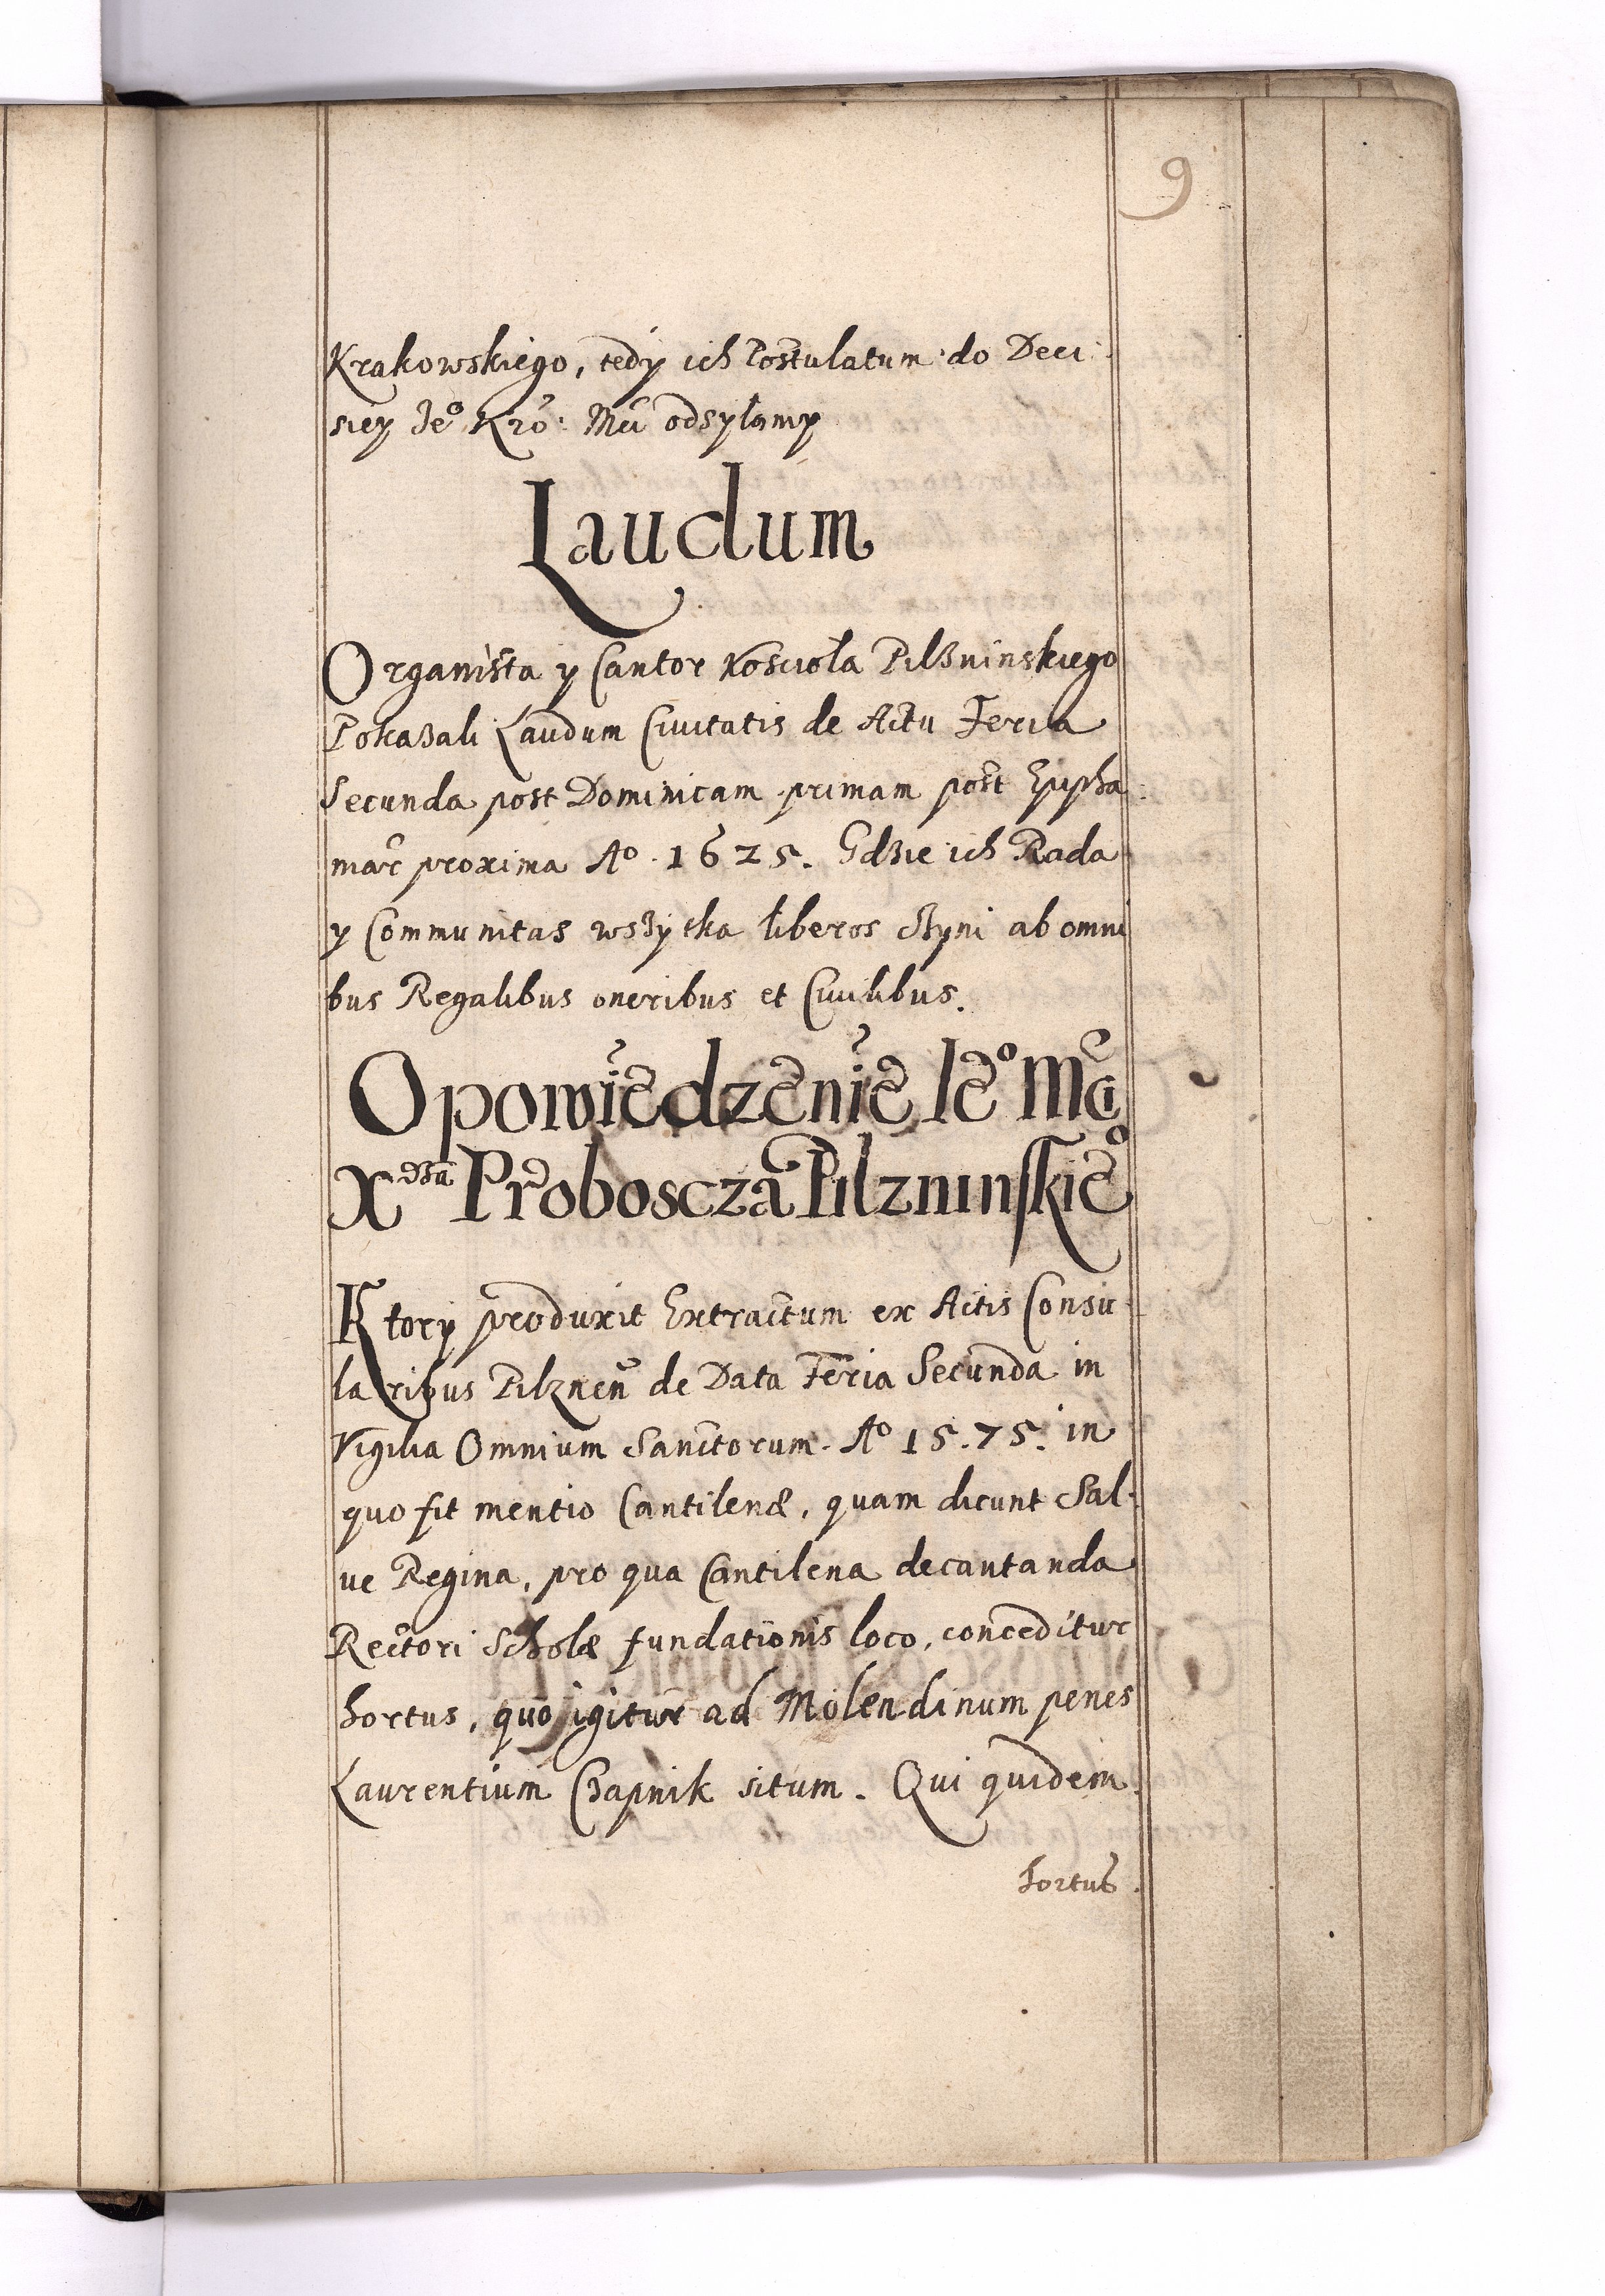 9
Krakowskiego, tedy ich Postulatum do Deci:
siey Jeº Kro: Mci odsyłamy
Laudum
Organista y Cantor Kosciola Pilzninskiego
Pokazali Laudum Ciuitatis de Actu Feria
Secunda post Dominicam primam post Epipha:
niar proxima Aº 1625. Gdzie ich Rada
y Communitas wszytka liberos czyni ab omni
bus Regalibus oneribus et Ciuilibus.
Opowiedzenie Ieº Mci
Xdza Proboscza Pilzninskieº
Ktory produxit Extractum ex Actis Consu
laribus Pilznen de Data Feria Secunda in
Vigilia Omnium Sanctorum. Aº 15.75. in
quo fit mentio Cantilenæ, quam dicunt Sal-
ue Regina, pro qua Cantilena decantanda
Rectori Scholæ fundationis loco, conceditur
hortus, quo igitur ad Molendinum penes
Laurentium Czapnik situm. Qui quidem
hortus.